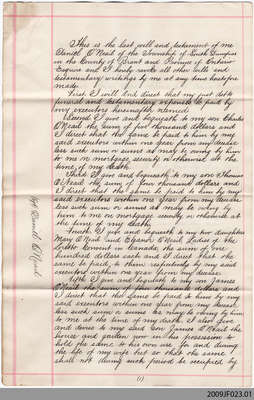 This is the last will and testament of me
Daniel O'Neail of the Township of South Dumfries
in the County of Brant and Province of Ontario
Esquire and I hereby revoke all other wills and
testamentary writings of me at any time hereto
made.
First I will and direct that my just debts
funeral and testamentary expenses be paid by
my executors hereinafter named.
Second I give and bequeath to my son Charles
O'Neail the sum of four thousand dollars and
I direct that the same be paid to him by my
said executors within one year from my decease
less such sum or sums as may be owing by him
to me on mortgage security or otherwise at the
time of my death.
Third I give and bequeath to my son Thomas
O'Neail the sum of two thousand dollars and
I direct that the same be paid to him by my
said executors within one year from my decease
less such sum or sums as may be owing by
him to me on mortgage security or otherwise at
the time of my death.
Fourth I give and bequeath to my two daughters
Mary O'Neail and Eleanor O'Neail Ladies of the
Loretto Convent in Canada the sum of
hundred dollars each and I direct that the
same be paid to them respectively by my said
executors within one year from my decease.
Fifth I give and bequeath to my son James
O'Neail the sum of five thousand dollars and
I direct that the same be paid to him by my
said executors within one year from my decease
less such sum or sums as may be owing by him
to me at the time of my death. I also give
and devise to my said son James O'Neail the
house and garden now in his possession to
hold the same to his own use for and during
the life of my wife but so that the same
shall not during such period be occupied by
(1)
Daniel O'Neail
2009JF023.01